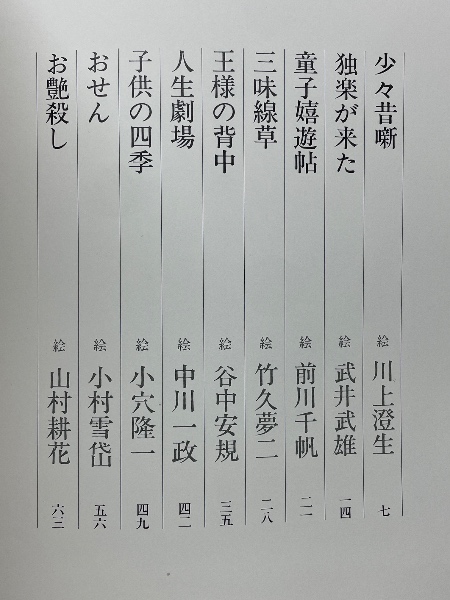 少々昔噺 絵 川上澄生 七
独楽が来た 絵 武井武雄 一四
童子嬉遊帖 絵 前川千帆 二一
三味線草 絵 竹久夢二 二八
王様の背中 絵 谷中安規 三五
人生劇場 絵 中川一政 四二
子供の四季 絵 小穴隆一 四九
おせん 絵 小村雪岱 五六
お艶殺し 絵 山村耕花 六三